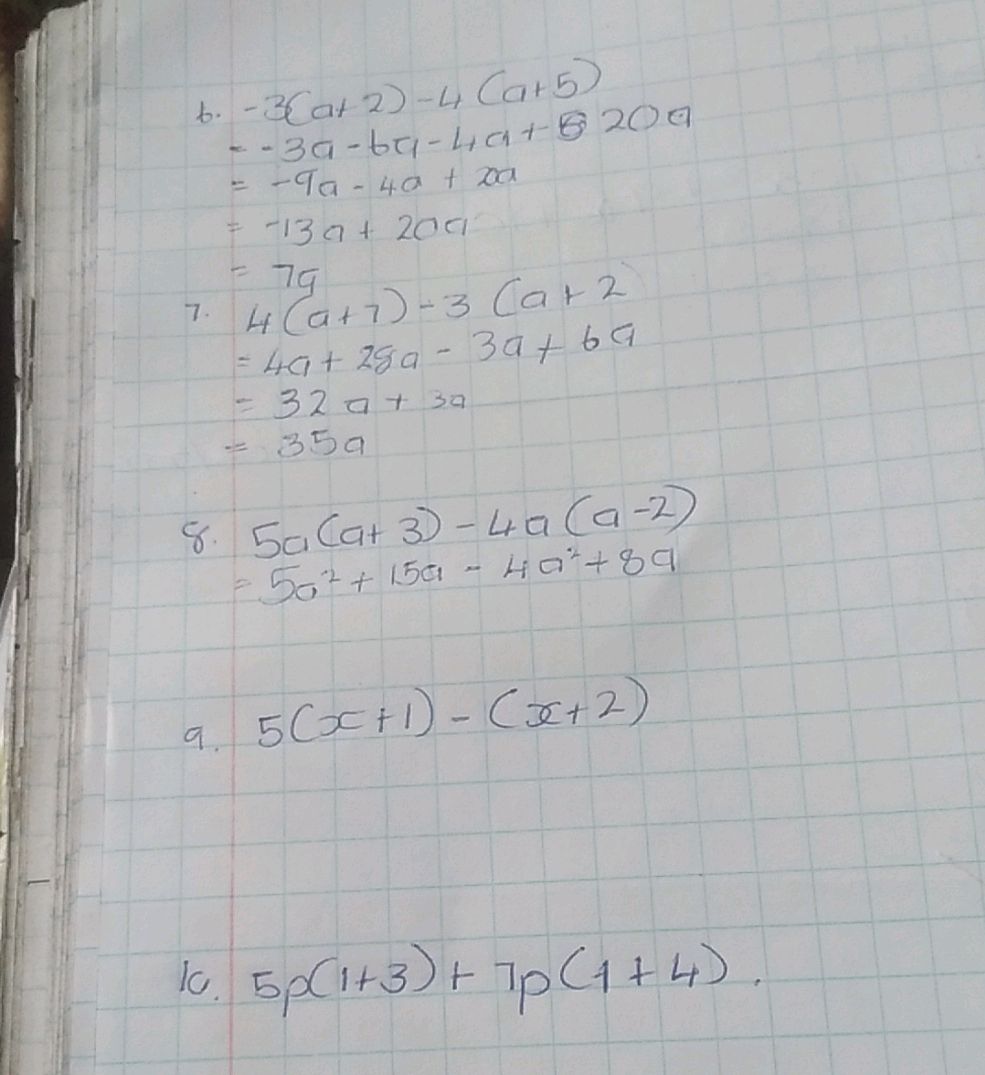 6. -3(a+2)-4(a+5)
= -3a-6a-4a+ 20a
= -9a-4a+20a
= -13a+20a
= 7a
7. 4(a+7)-3(a+2
= 4a+28a-3a+6a
= 32a+3a
= 35a
8. 5a(a+3)-4a(a-2)
= 5a²+15a-4a²+8a
9. 5(x+1)-(x+2)
10. 5p(1+3)+7p(1+4).